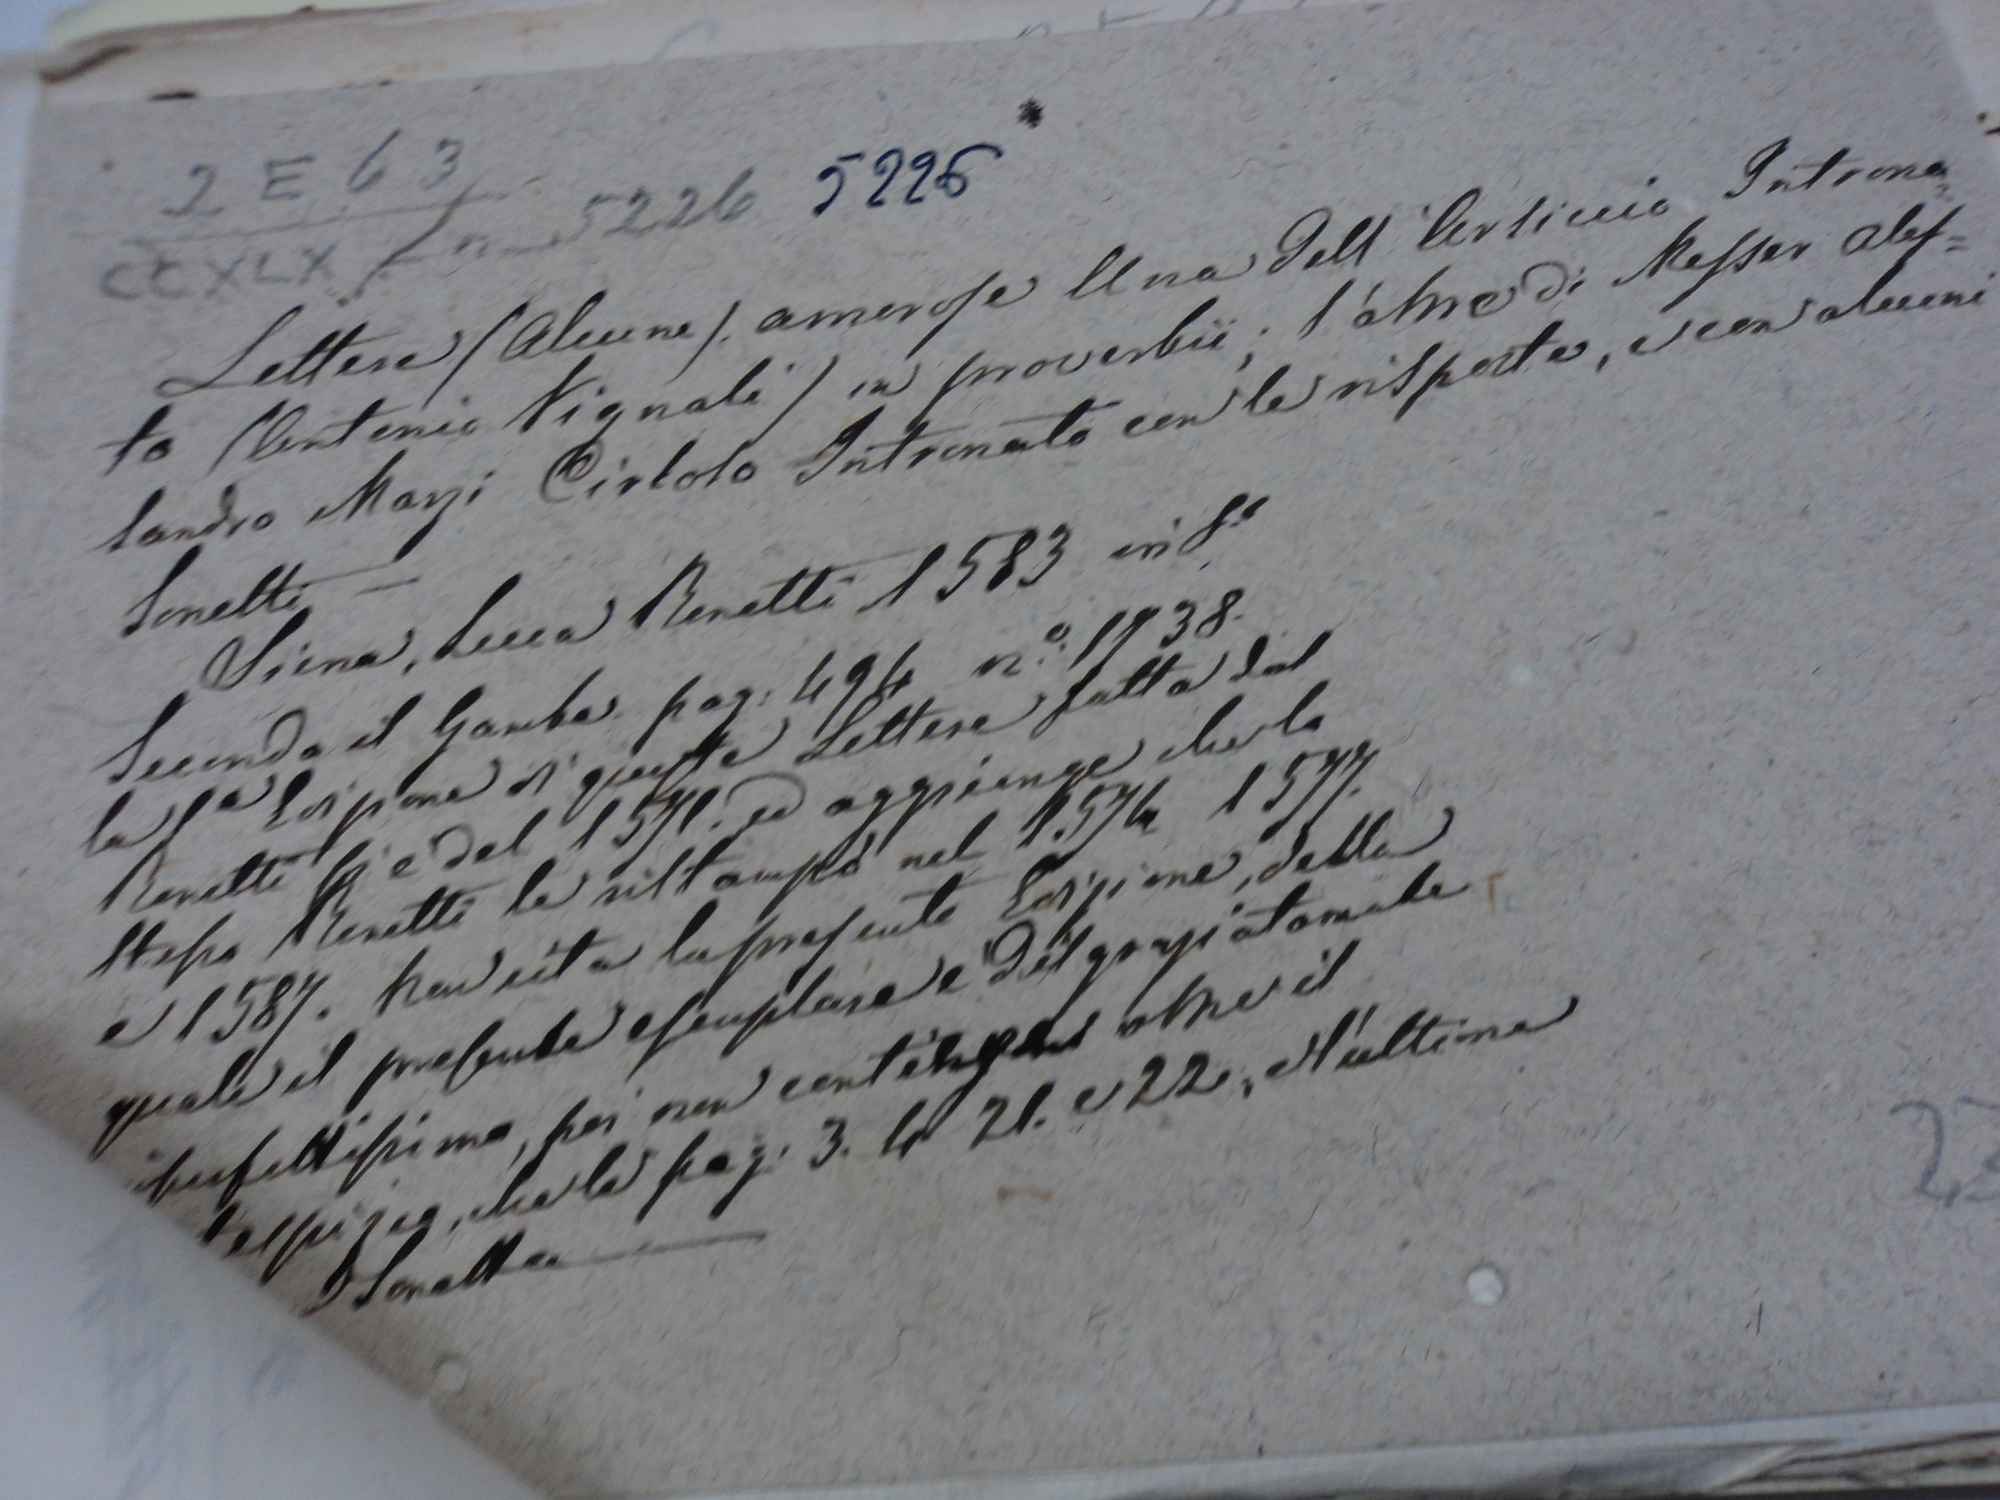 2 E 63
CCXLX n 5226 5226 *
Lettere (Alcune) amorose Una Dell' Arsiccio Introna-
to (Antonio Vignali) in proverbii; l'altre di Messer Ales=
sandro Marzi Cirloso Intronato con le risposte, e con alcuni
Sonetti —
Siena, Luca Bonetti 1583 in 8°
Secondo il Gamba pag: 494 n°: 1938.
la 1ª Edizione di queste Lettere fatta dal
Bonetti è del 1571. ed aggiunge che lo
stesso Bonetti le ristampò nel 1574 1577.
e 1587. Non cita la presente Edizione, della
quale il presente esemplare è disgraziatamente
imperfettissimo, per non oltre il
che le pag: 3. 4 21. e 22, e l'ultima
Sonetto —
23